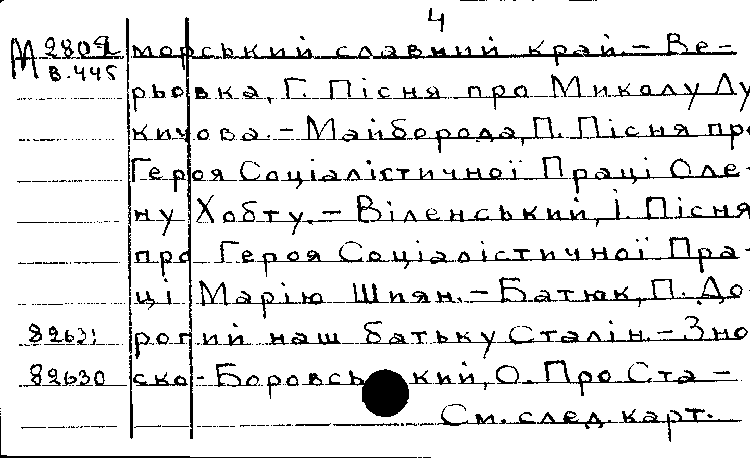 4
М 2809 морський славний край. – Ве-
В.445
рьовка, Г. Пісня про Миколу Лу
кичова. – Майборода, П. Пісня про
Героя Соціалістичної Праці Оле-
ну Хобту. – Віленський, І. Пісня
про Героя Соціалістичної Пра-
ці Марію Шпян. – Батюк, П. До-
82631 рогий наш батьку Сталін. – Зно
82630 ско-Боровський, О. Про Ста –
См. след. карт.